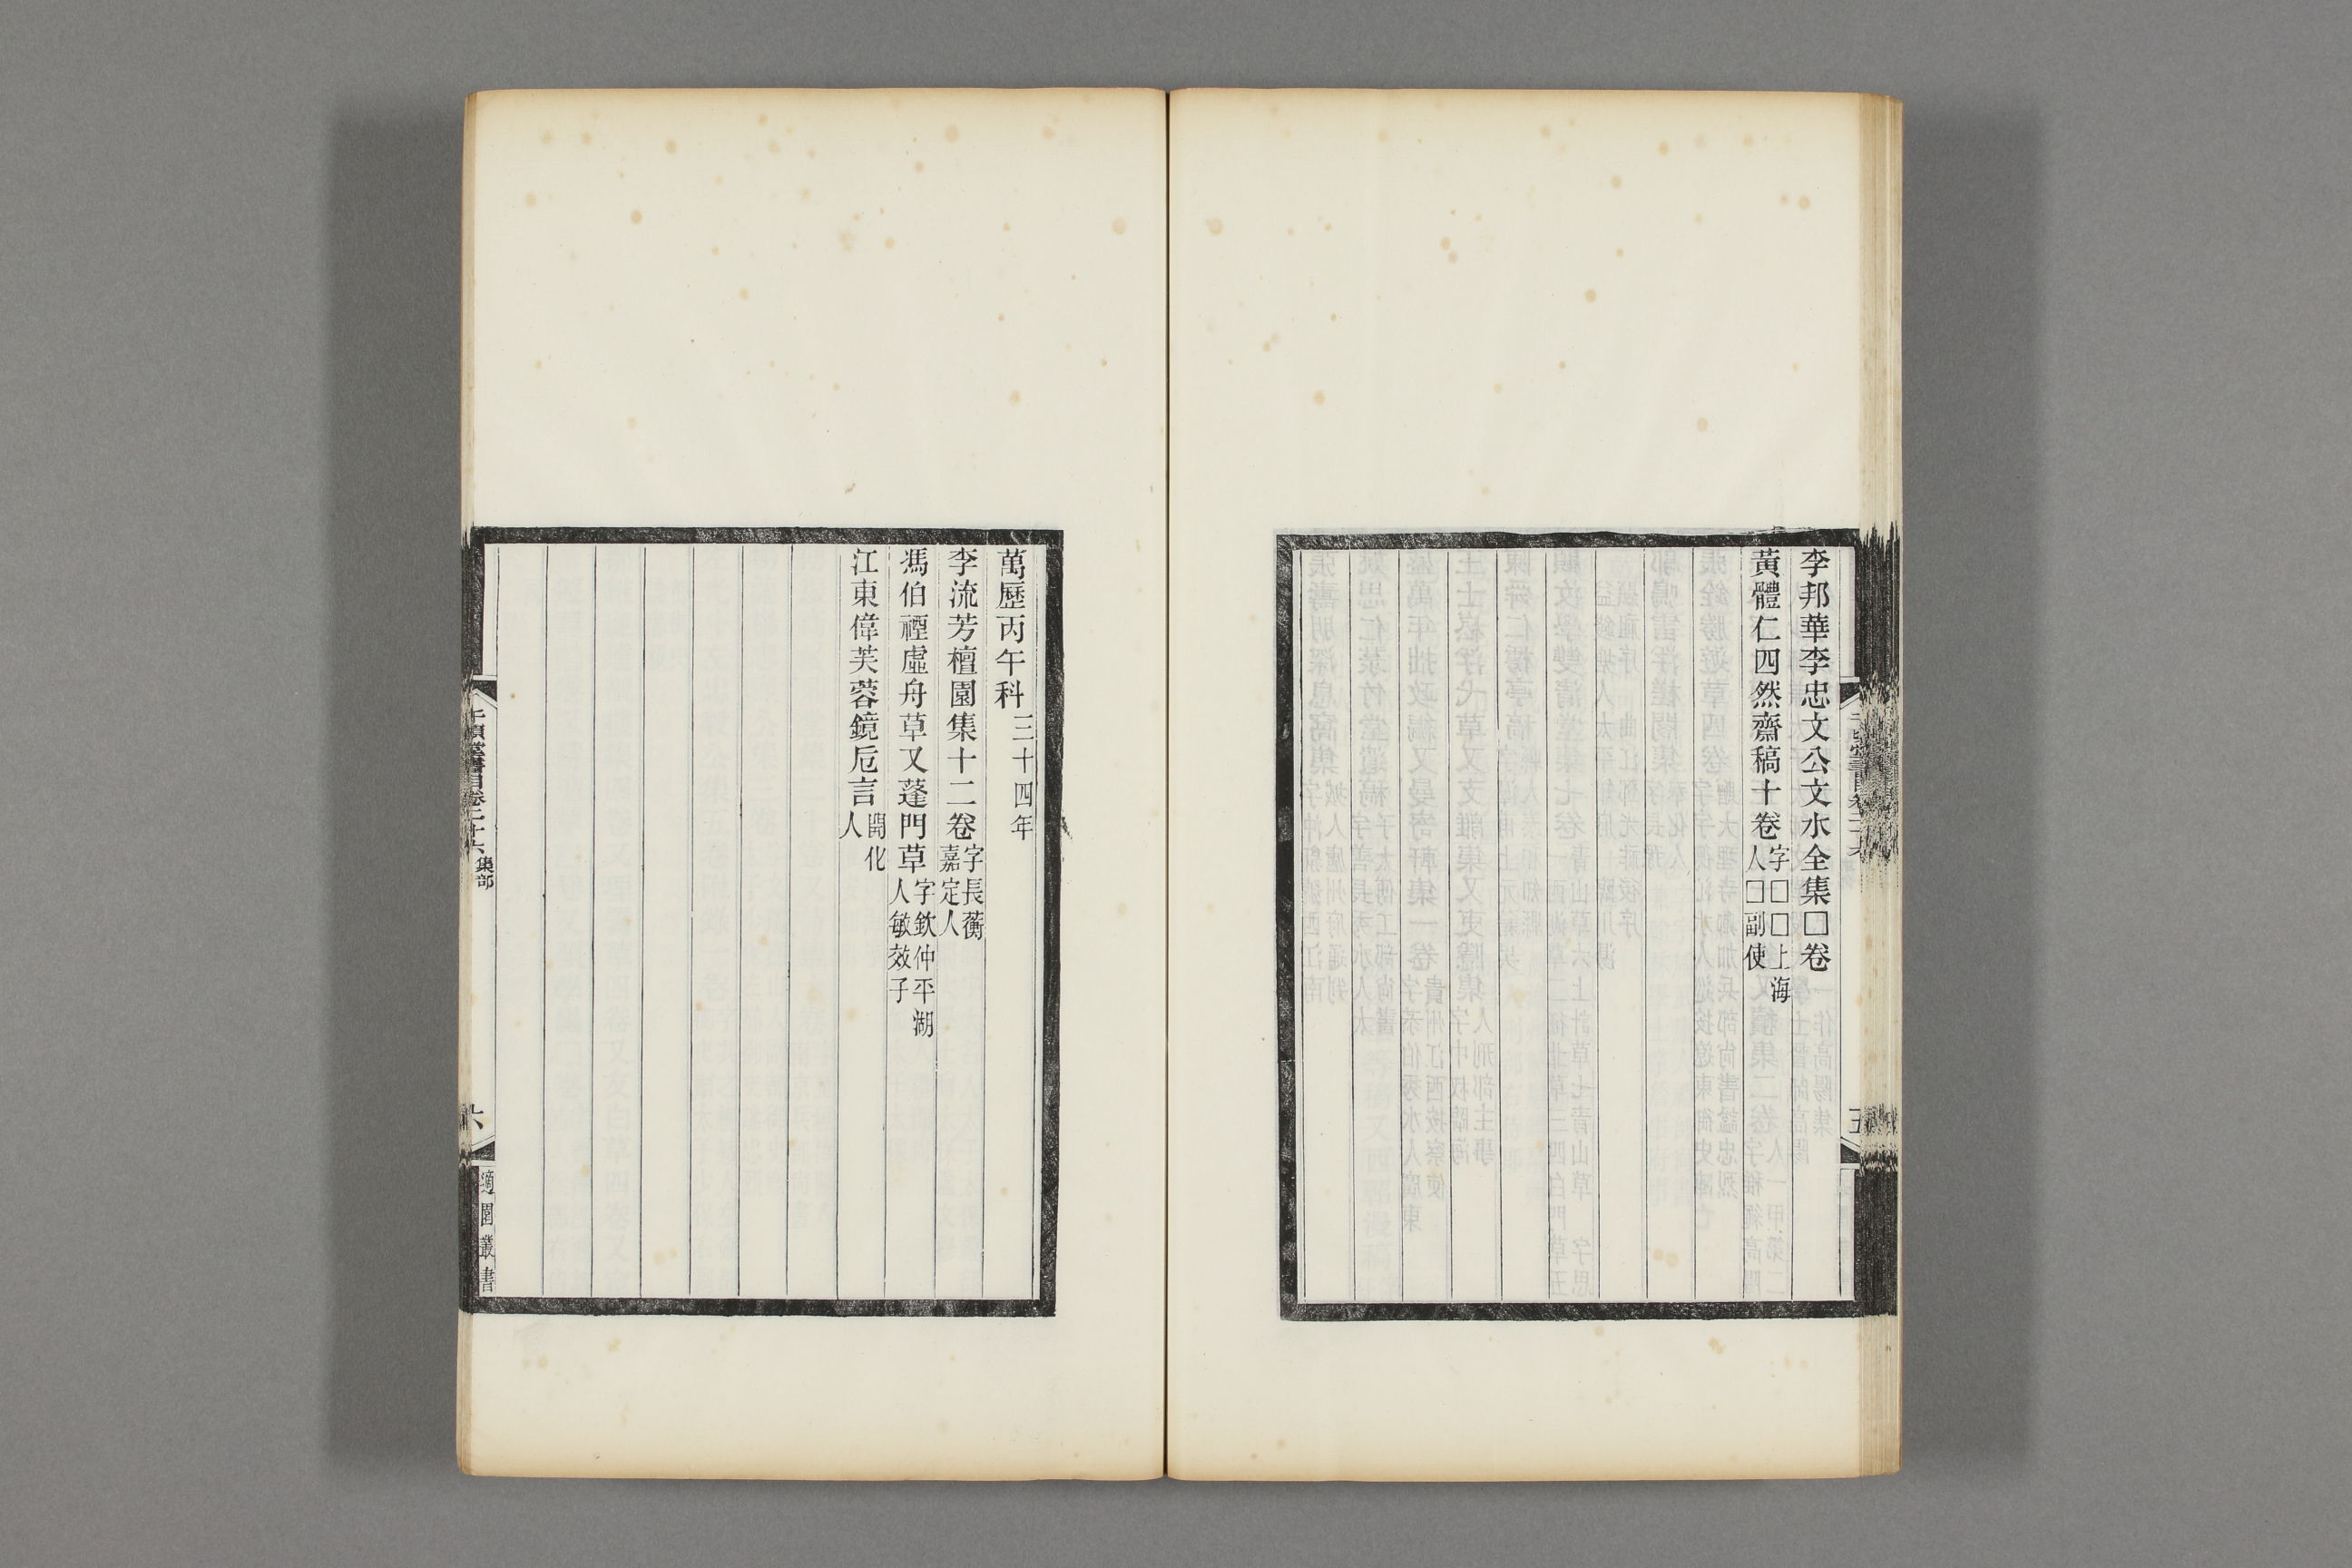 李邦華李忠文公文水全集□卷
黃體仁四然齋稿十卷字□□上海人□副使
萬歷丙午科三十四年
李流芳檀園集十二卷字長蘅嘉定人
馮伯禋虛舟草又蓬門草字欽仲平湖人敏效子
江東偉芙蓉鏡卮言開化人
千頃堂書目卷二十六 集部
六
適園叢書